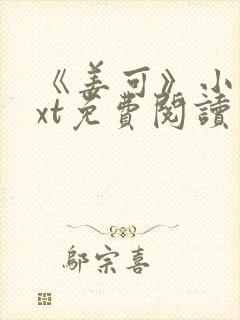 《姜可》小
xt免費閱讀
鄔宗喜